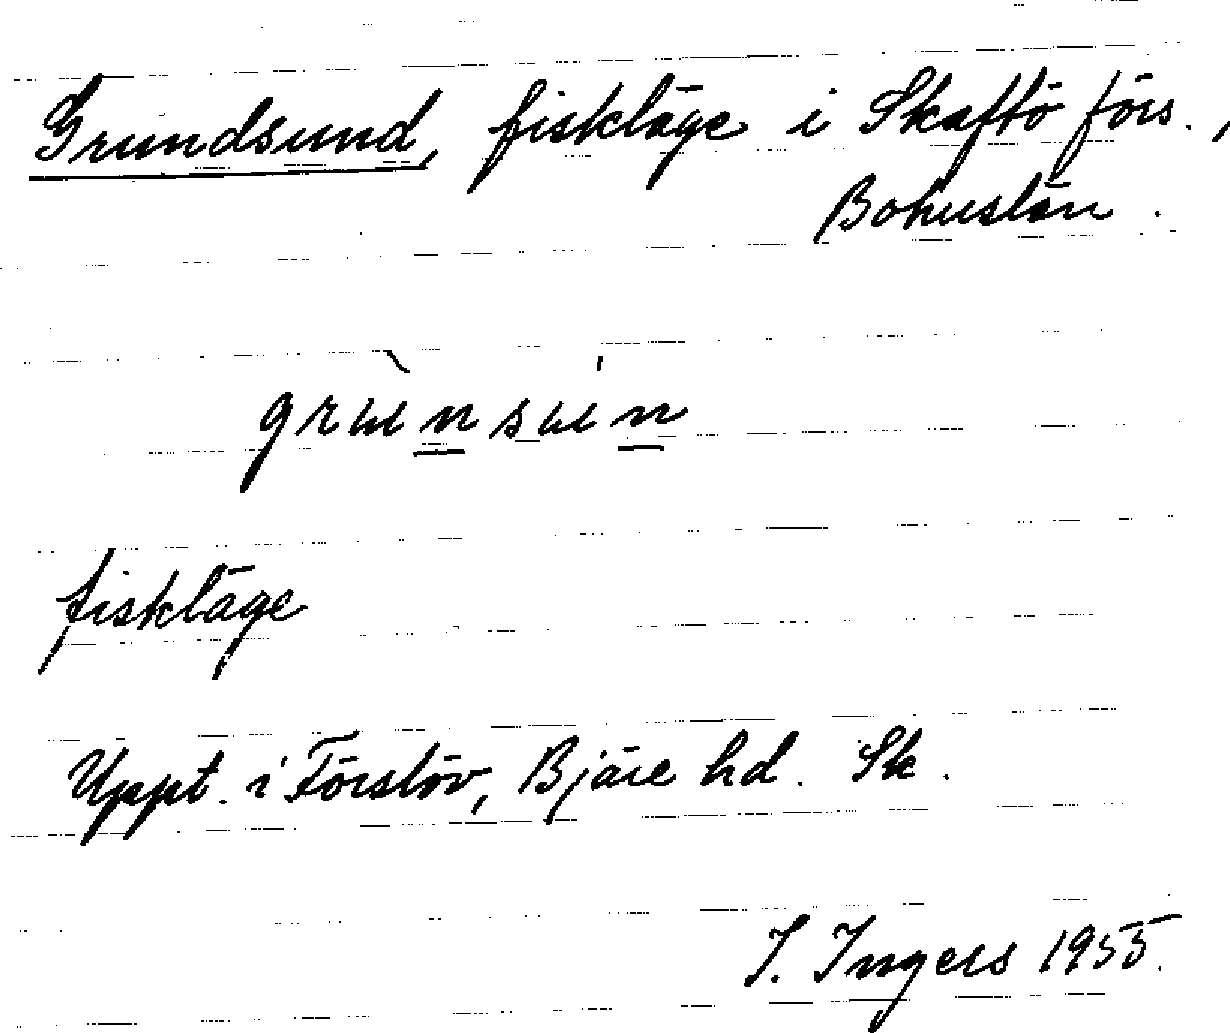 Grundsund, fiskläge i Skaftö förs.,
Bohuslän.
grùnsún
fiskläge
Uppt. i Förslöv, Bjäre hd. Sk.
I. Ingers 1955.